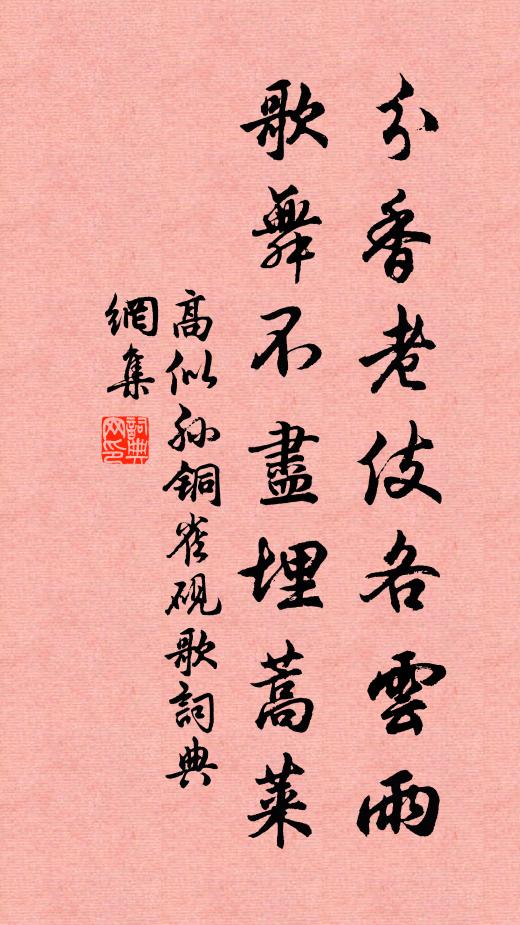 分香老伎各雲雨
歌舞不盡埋蒿萊
高似孫銅雀硯歌詞典
網集
詞典
网印